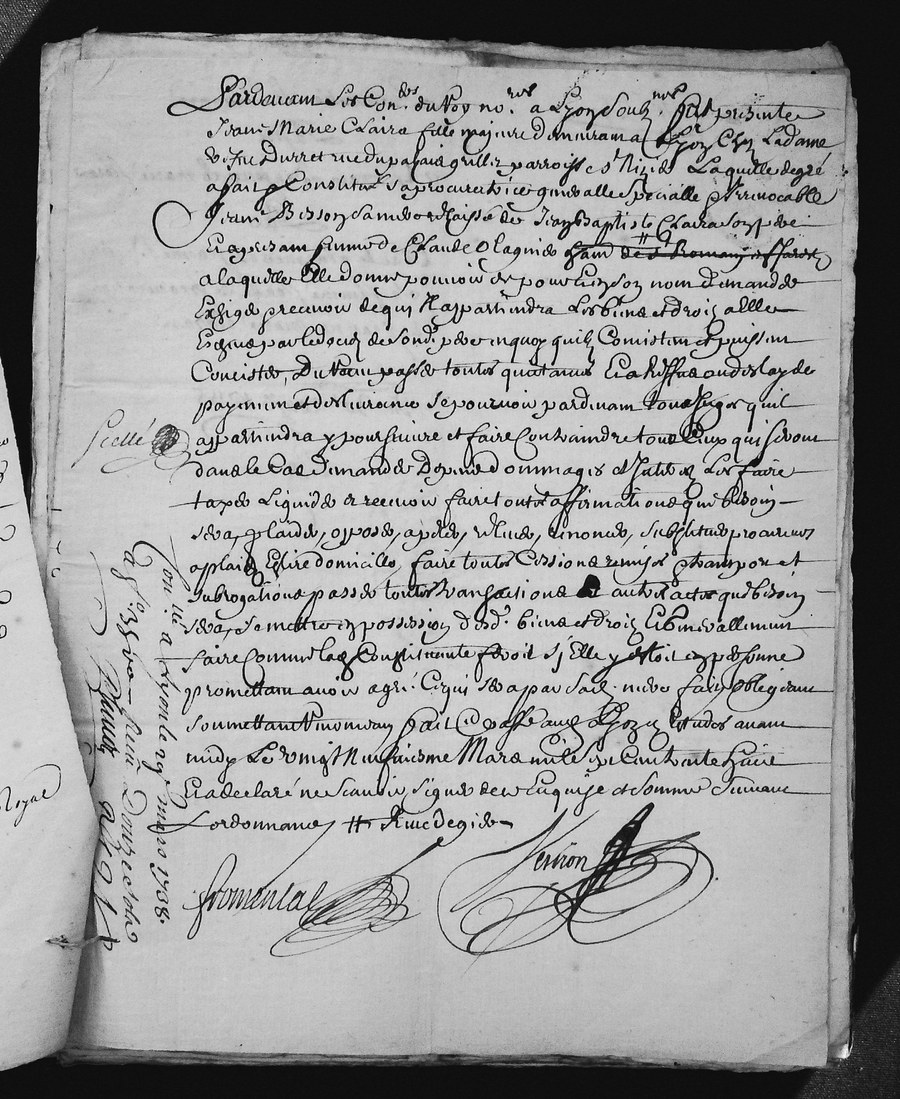 Pardevant les Con.ers du Roy no.res a Lyon soub.nés fut presente
Jeanne Marie Claira fille majeure demeurant a Lyon chez La dame
veufve Durret rue du palais grillet parroisse st Nizier Laquelle de gré
a fait et constitué sa procuratrice generalle specialle et irrevocable
Jeanne Bisson sa mere relaissée de Jean Baptiste Claira son pere
Et a present femme de Claude Olagnier
a laquelle Elle donne pouvoir de pour Et en son nom demander
Exiger recevoir de qui Il appartiendra Les biens et droits a Elle
Echeus par le deceds de sond. pere en quoy quils Consistent et puissent
Concister, Du tout passer toutes quittances Et a deffaut ou delay de
payement et delivrance se pourvoir pardevant tous Juges quil
appartiendra y poursuivre et faire Contraindre tous Ceux qui seront
dans le Cas Demander Depens Dommages et Interets Les faire
taxer Liquider et recevoir faire toutes affirmations que besoin
sera, plaider, oposer, apeller, relever, renoncer, substituer procureurs
a plaids Eslire domicilles, faire toutes Cessions remises transport et
subrogations passer toutes transactions et autres actes que besoin
sera, se mettre en possession desd. biens et droits Et Generallement
faire Comme lad. Constituante feroit sy Elle y estoit en personne
promettant avoir agreé Ce qui sera par sad. mere fait obligeant
soumettant renonçant fait Et passé aud. Lyon es Etudes avant
midy Le vingt Neufvieme Mars mil sept Cent trente huit
Et a declaré ne scavoir signer de ce Enquise et sommée suivant
Lordonnance # Rivedegier
fromental
Perrin
scellé
Con.lé a Lyon le 29 mars 1738.